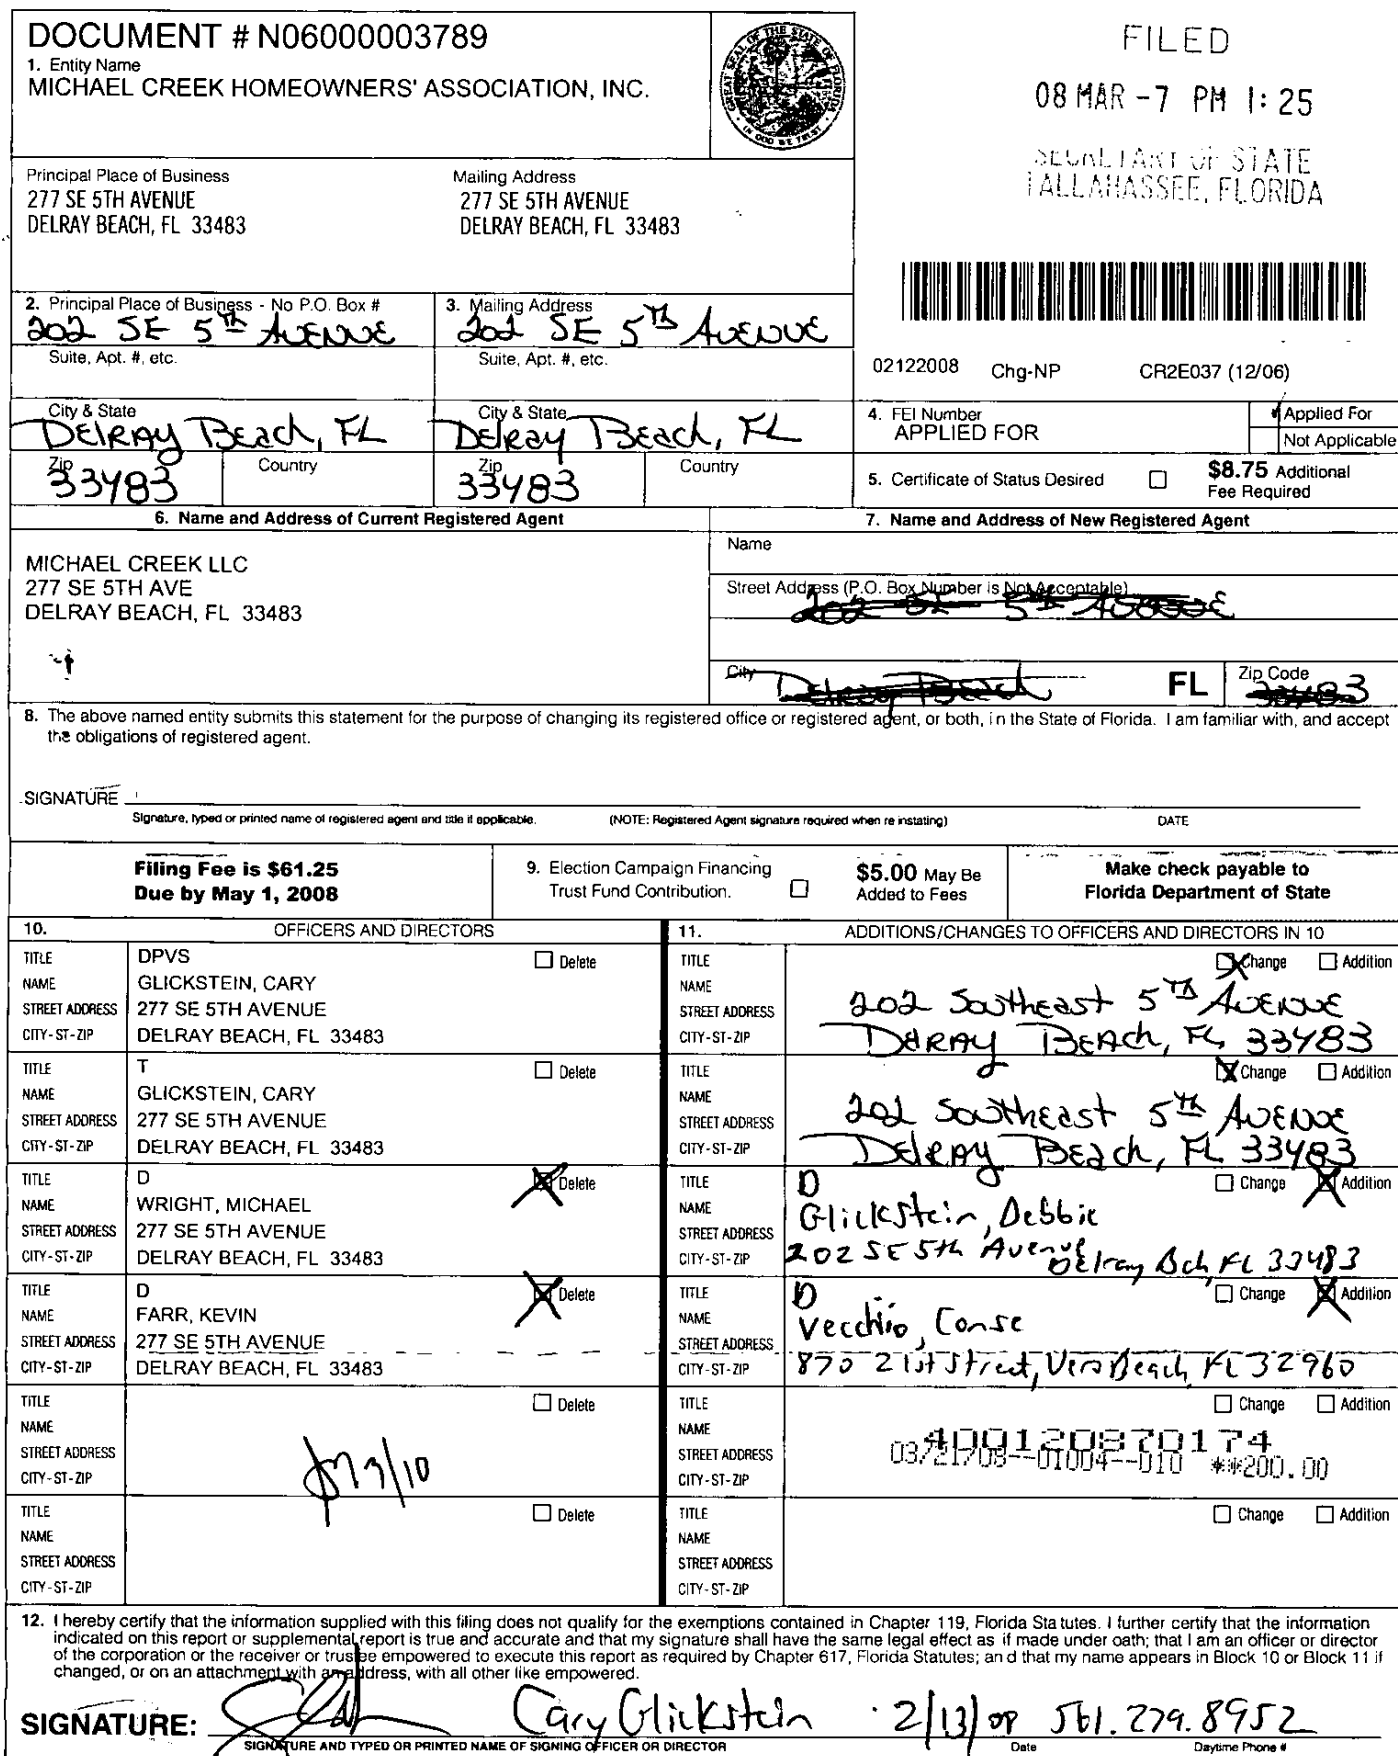 DOCUMENT # N06000003789
1. Entity Name
MICHAEL CREEK HOMEOWNERS' ASSOCIATION, INC.
GREAT SEAL OF THE STATE OF FLORIDA
IN GOD WE TRUST
FILED
08 MAR -7 PM 1:25
SECRETARY OF STATE
TALLAHASSEE, FLORIDA
Principal Place of Business
277 SE 5TH AVENUE
DELRAY BEACH, FL 33483
Mailing Address
277 SE 5TH AVENUE
DELRAY BEACH, FL 33483
2. Principal Place of Business - No P.O. Box #
202 SE 5th AVENUE
3. Mailing Address
202 SE 5th AVENUE
Suite, Apt. #, etc.
Suite, Apt. #, etc.
02122008 Chg-NP CR2E037 (12/06)
City & State
DELRAY BEACH, FL
City & State
DELRAY BEACH, FL
Zip
33483
Country
Zip
33483
Country
4. FEI Number
APPLIED FOR
Applied For
Not Applicable
5. Certificate of Status Desired
$8.75 Additional
Fee Required
6. Name and Address of Current Registered Agent
MICHAEL CREEK LLC
277 SE 5TH AVE
DELRAY BEACH, FL 33483
7. Name and Address of New Registered Agent
Name
Street Address (P.O. Box Number is Not Acceptable)
202 SE 5th AVENUE
City
Delray Beach
FL
Zip Code
33483
8. The above named entity submits this statement for the purpose of changing its registered office or registered agent, or both, in the State of Florida. I am familiar with, and accept
the obligations of registered agent.
SIGNATURE
Signature, typed or printed name of registered agent and title if applicable. (NOTE: Registered Agent signature required when reinstating) DATE
Filing Fee is $61.25
Due by May 1, 2008
9. Election Campaign Financing
Trust Fund Contribution.
$5.00 May Be
Added to Fees
Make check payable to
Florida Department of State
10. OFFICERS AND DIRECTORS
11. ADDITIONS/CHANGES TO OFFICERS AND DIRECTORS IN 10
TITLE DPVS Delete
NAME GLICKSTEIN, CARY
STREET ADDRESS 277 SE 5TH AVENUE
CITY-ST-ZIP DELRAY BEACH, FL 33483
TITLE Change Addition
NAME
STREET ADDRESS 202 Southeast 5th AVENUE
CITY-ST-ZIP DELRAY BEACH, FL 33483
TITLE T Delete
NAME GLICKSTEIN, CARY
STREET ADDRESS 277 SE 5TH AVENUE
CITY-ST-ZIP DELRAY BEACH, FL 33483
TITLE Change Addition
NAME
STREET ADDRESS 202 Southeast 5th AVENUE
CITY-ST-ZIP DELRAY BEACH, FL 33483
TITLE D Delete
NAME WRIGHT, MICHAEL
STREET ADDRESS 277 SE 5TH AVENUE
CITY-ST-ZIP DELRAY BEACH, FL 33483
TITLE D Change Addition
NAME Glickstein, Debbie
STREET ADDRESS
CITY-ST-ZIP 202 SE 5th Avenue Delray Bch, FL 33483
TITLE D Delete
NAME FARR, KEVIN
STREET ADDRESS 277 SE 5TH AVENUE
CITY-ST-ZIP DELRAY BEACH, FL 33483
TITLE D Change Addition
NAME Vecchio, Conse
STREET ADDRESS
CITY-ST-ZIP 870 21st Street, Vero Beach, FL 32960
TITLE Delete
NAME
STREET ADDRESS
CITY-ST-ZIP
3/10
TITLE Change Addition
NAME
STREET ADDRESS
CITY-ST-ZIP
400120870174
03/21/08--01004--010 **200.00
TITLE Delete
NAME
STREET ADDRESS
CITY-ST-ZIP
TITLE Change Addition
NAME
STREET ADDRESS
CITY-ST-ZIP
12. I hereby certify that the information supplied with this filing does not qualify for the exemptions contained in Chapter 119, Florida Statutes. I further certify that the information
indicated on this report or supplemental report is true and accurate and that my signature shall have the same legal effect as if made under oath; that I am an officer or director
of the corporation or the receiver or trustee empowered to execute this report as required by Chapter 617, Florida Statutes; and that my name appears in Block 10 or Block 11 if
changed, or on an attachment with an address, with all other like empowered.
SIGNATURE: Cary Glickstein 2/13/08 561.279.8952
SIGNATURE AND TYPED OR PRINTED NAME OF SIGNING OFFICER OR DIRECTOR Date Daytime Phone #